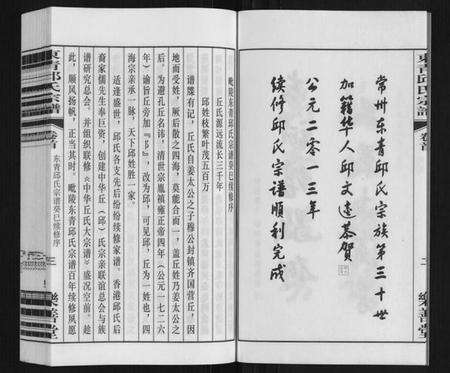 東青邱氏宗譜
卷首
二
樂善堂
常州东青邱氏宗族第三十世
加籍华人邱文达恭贺
公元二零一三年
续修邱氏宗谱顺利完成
毗陵东青邱氏宗谱癸巳续修序
丘氏源远流长三千年
邱姓枝繁叶茂五百万
谱牒有记，丘氏自姜太公之子穆公封镇齐国营丘，因
地而受姓，厥后散之四海，莫能合而一，盖丘姓乃姜太公之
后。为避孔丘名讳，清世宗胤禛雍正帝四年（公元一七二六
年）谕旨丘旁加『阝』，改为邱，可见邱、丘为一姓也，四
海宗亲承一脉，天下邱姓胜一家。
适逢盛世，邱氏各支先后纷纷续修家谱。香港邱氏后
裔家儒先生奉巨资，创建中华丘（邱）氏宗亲联谊总会与族
谱研究总会，并组织联修《中华丘氏大宗谱》盛况空前。趁
此，顺风扬帆，正当其时，毗陵东青邱氏宗谱百年续修夙愿
東青邱氏宗譜
卷首
东青邱氏宗谱癸巳续修序
三
樂善堂